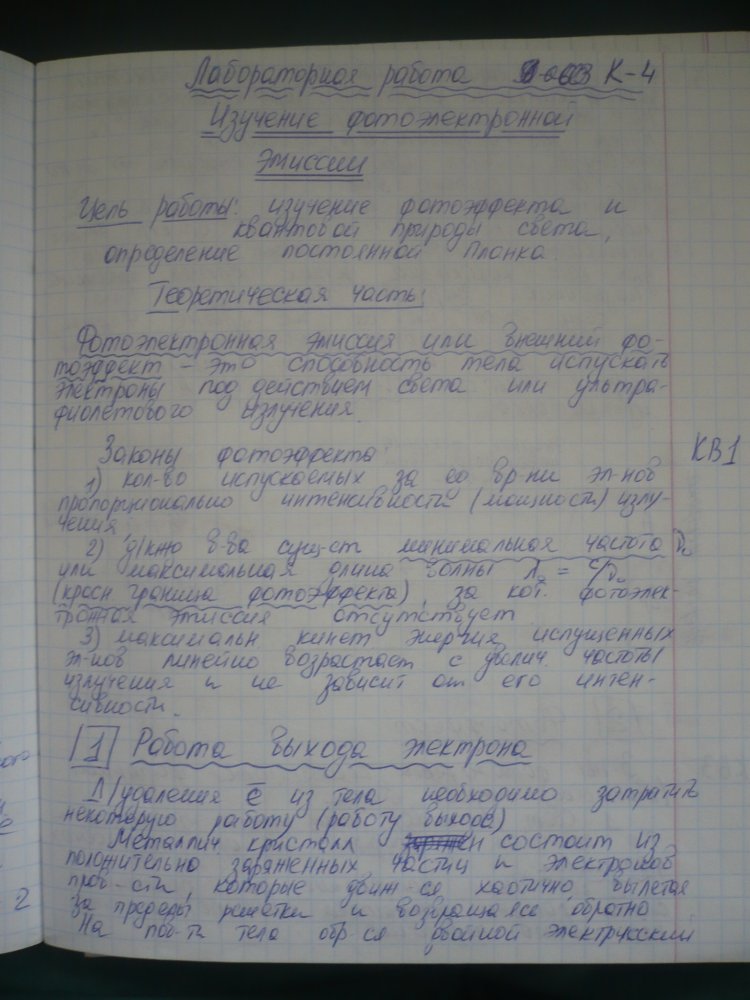 Лабораторная работа К-4
Изучение фотоэлектронной
эмиссии
Цель работы: изучение фотоэффекта и
квантовой природы света,
определение постоянной Планка.
Теоретическая часть
Фотоэлектронная эмиссия или внешний фо-
тоэффект – это способность тела испускать
электроны под действием света или ультра-
фиолетового излучения.
Законы фотоэффекта
КВ1
1) кол-во испускаемых за вр-ни эл-нов
пропорционально интенсивности (мощности) излу-
чения
2) д/кжо в-ва сущ-ст минимальная частота ν₀
или максимальная длина волны λ₀ = c/ν₀
(красн граница фотоэффекта), за кот. фотоэлек-
тронная эмиссия отсутствует
3) максимальн. кинет энергия испущенных
эл-нов линейно возрастает с увелич. частоты
излучения и не зависит от его интен-
сивности.
1 Работа выхода электрона
Д/удаления ē из тела необходимо затратить
некоторую работу (работу выхода)
Металлич. кристалл состоит из
положительно заряженных частиц и электронов
пров-сти, которые движ-ся хаотично вылетая
за пределы решетки и возвращаясь обратно
На пов-ти тела обр-ся двойной электрический
2